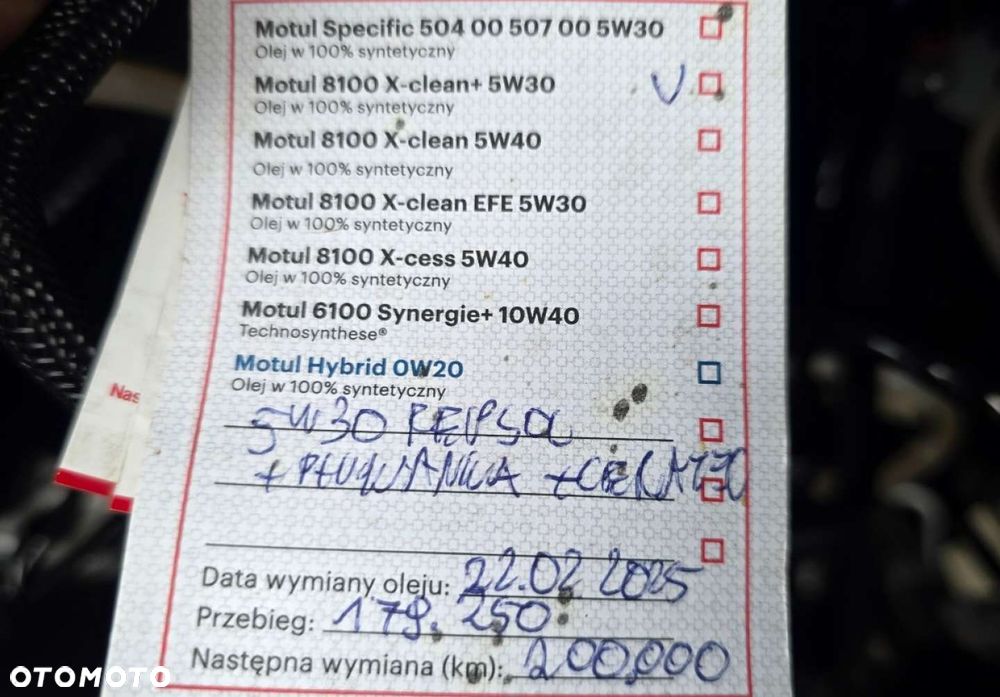 Motul Specific 504 00 507 00 5W30
Olej w 100% syntetyczny
Motul 8100 X-clean+ 5W30
V
Olej w 100% syntetyczny
Motul 8100 X-clean 5W40
Olej w 100% syntetyczny
Motul 8100 X-clean EFE 5W30
Olej w 100% syntetyczny
Motul 8100 X-cess 5W40
Olej w 100% syntetyczny
Motul 6100 Synergie+ 10W40
Technosynthese®
Motul Hybrid 0W20
Olej w 100% syntetyczny
Nas
5W30 REPSOL
+ PŁUKANKA +
Data wymiany oleju: 22.02 2025
Przebieg: 179.250
Następna wymiana (km): 200.000
OTOMOTO